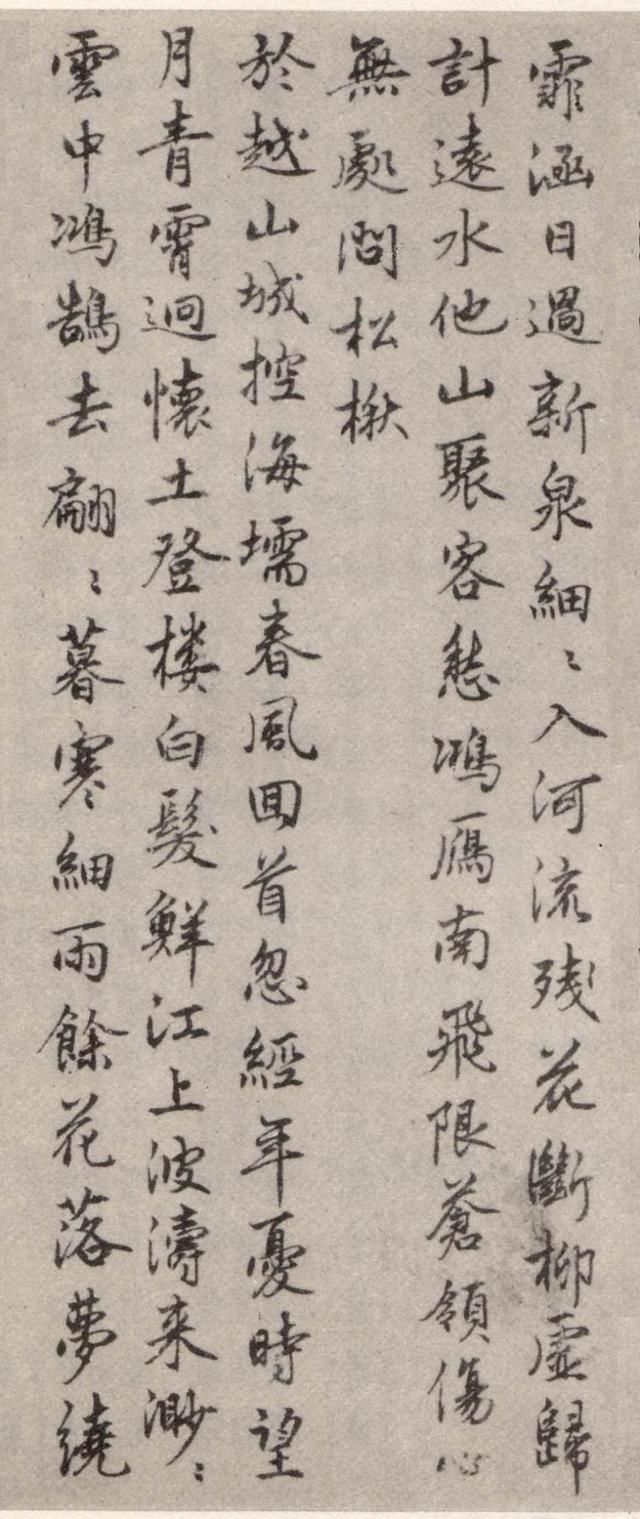 霏涵日過新泉細〻入河流残花斷柳虛歸
計遠水他山聚客愁鴻雁南飛限蒼領傷心
無處問松楸
於越山城控海壖春風回首忽經年憂時望
月青霄迥懷土登楼白髮鮮江上波濤来渺〻
雲中鴻鵠去翩〻暮寒細雨餘花落夢繞